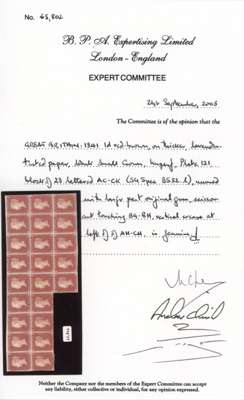 No. 68,802
B. P. A. Expertising Limited
London - England
EXPERT COMMITTEE
September, 2005
The Committee is of the opinion that the
GREAT BRITAIN: 1841 1d red-brown, on thicker, lavender
tinted paper, Small Crown, Plate 121
block of 23 lettered AC-CK (SG Spec BS22), unused
with large part original gum, scissor
cut touching BG-BH, vertical crease at
left of AH-CH, is genuine
Neither the Company nor the members of the Expert Committee can accept
any liability, either collective or individual, for any opinion expressed.